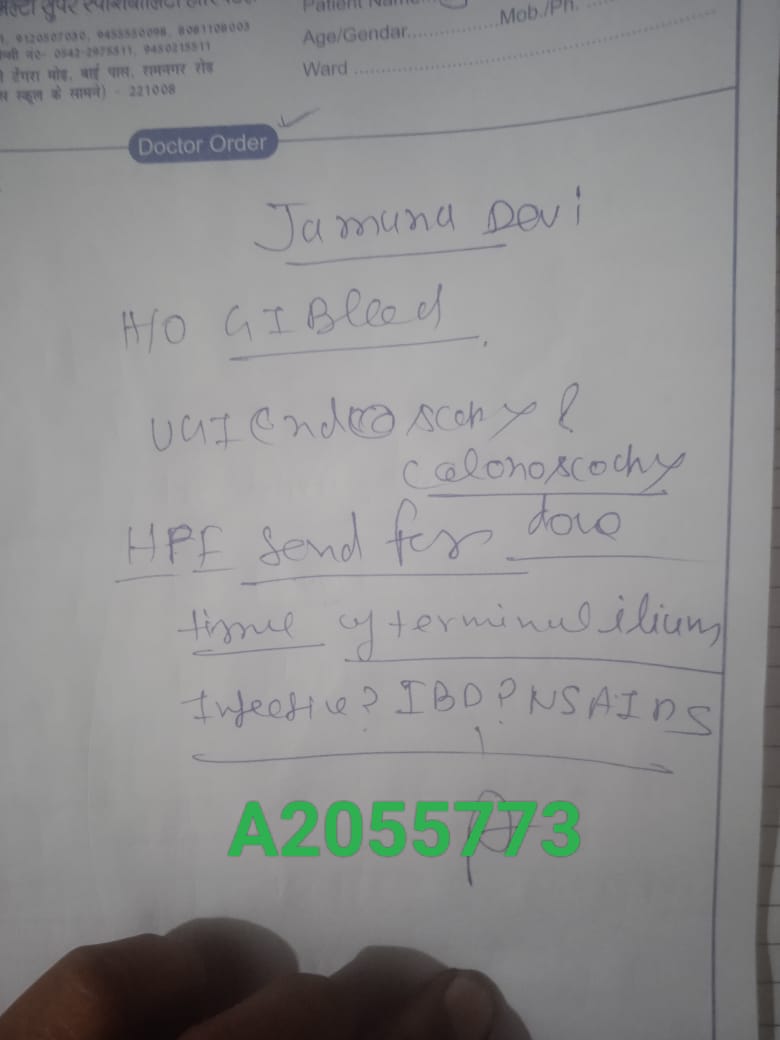 मल्टी सुपर स्पेशियलिटी
Patient Name
Mob./Ph.
9120507030, 9455550098, 8081108003
Age/Gendar
नं०- 0542-2975511, 9450215511
Ward
टेंगरा मोड़, बाई पास, रामनगर रोड
स्कूल के सामने) - 221008
Doctor Order
Jamuna Devi
H/O GI Bleed
UGI Endoscopy &
Colonoscochy
HPE Send for done
tissue of terminul ilium
Infective? IBD? NSAIDS
A2055773